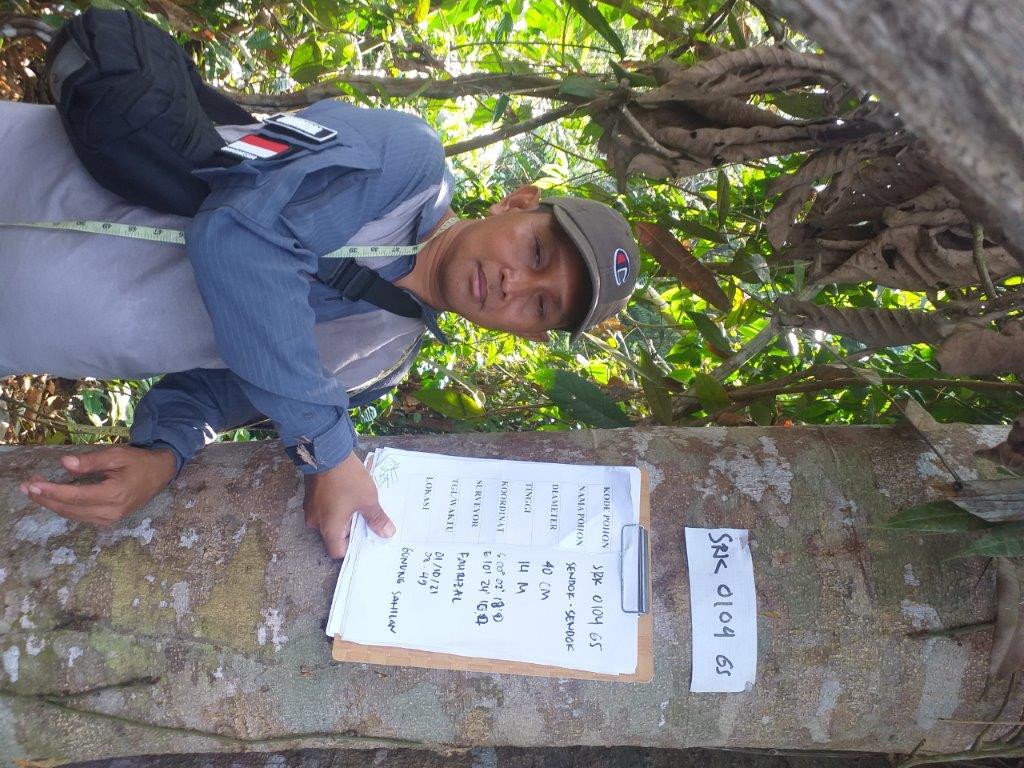 KODE POHON SRK 0104 GS
NAMA POHON SENDOK-SENDOK
DIAMETER 40 CM
TINGGI 14 M
KOORDINAT S 00° 02' 18
E 101 24 16
SURVEYOR FAHRIZAL
TGL/WAKTU 01/10/21
09 49
LOKASI GUNUNG SAHILAN
SRK 0104 GS